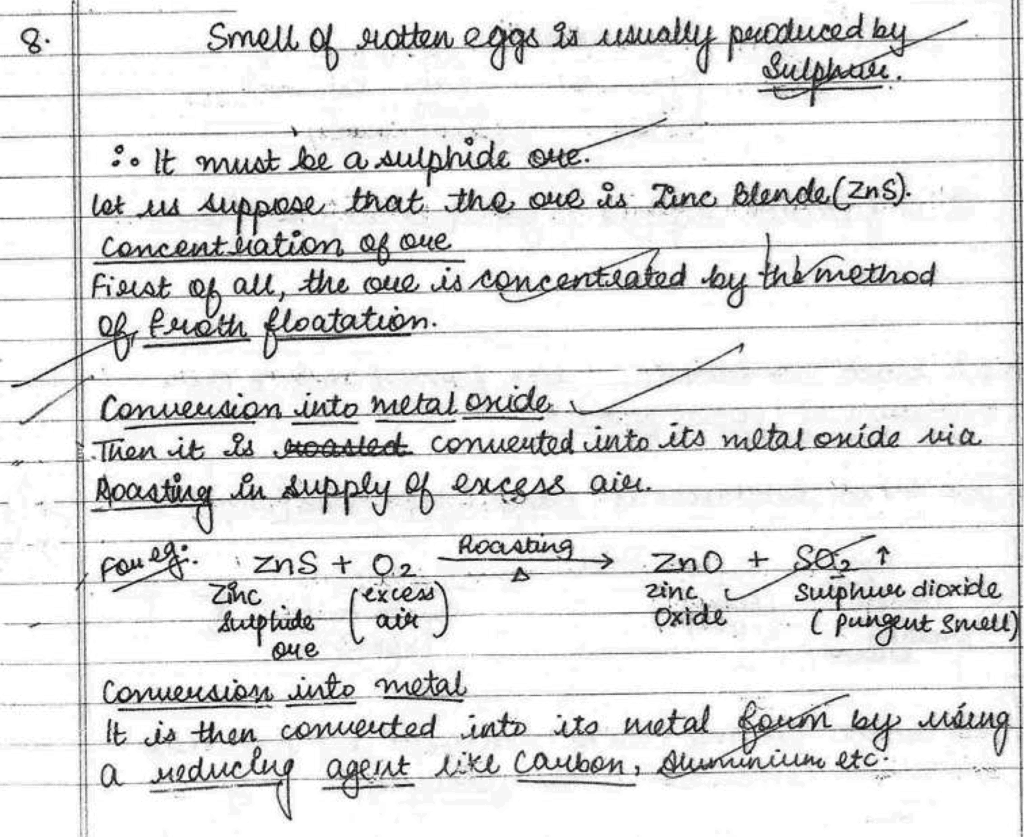 8. Smell of rotten eggs is usually produced by
Sulphur.
∴ It must be a sulphide ore.
let us suppose that the ore is Zinc Blende (ZnS).
Concentration of ore
First of all, the ore is concentrated by the method
of froth floatation.
Conversion into metal oxide
Then it is roasted converted into its metal oxide via
Roasting in supply of excess air.
For eg: ZnS + O2 Roasting Δ → ZnO + SO2 ↑
Zinc (excess zinc Sulphur dioxide
Sulphide air) Oxide (pungent smell)
ore
Conversion into metal
It is then converted into its metal form by using
a reducing agent like Carbon, Aluminium etc.